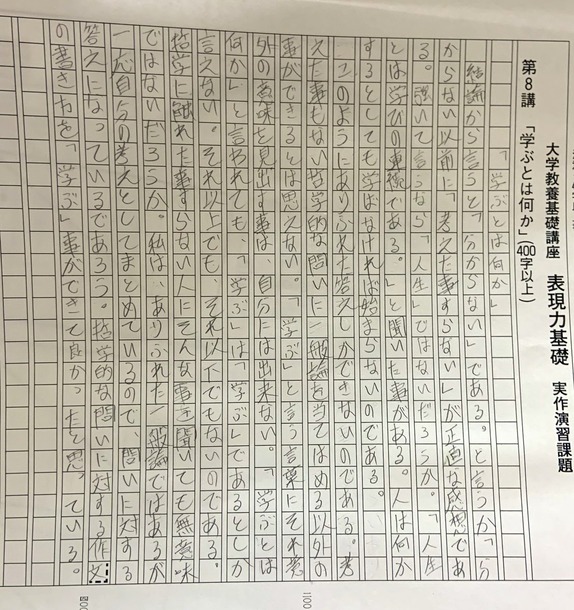 大学教養基礎講座 表現力基礎 実作演習課題
第8講 「学ぶとは何か」(400字以上)
「学ぶとは何か」
結論から言うと「分からない」である。と言うか「分
からない以前に「考えた事すらない」が正直な感想であ
る。強いて言うなら「人生」ではないだろうか。「人生
とは学びの連続である。」と聞いた事がある。人は何か
するとしても学ばなければ始まらないのである。
このようにありふれた答えしかできないのである。考
えた事もない哲学的な問いに一般論を当てはめる以外の
事ができるとは思えない。「学ぶ」と言う言葉にそれ意
外の意味を見出す事は、自分には出来ない。「学ぶとは
何か」と言われても、「学ぶ」は「学ぶ」であるとしか
言えない。それ以上でも、それ以下でもないのである。
哲学に触れた事すらない人にそんな事を聞いても無意味
ではないだろうか。私は、ありふれた一般論ではあるが
一応自分の考えとしてまとめているので、問いに対する
答えになっているであろう。哲学的な問いに対する作文
の書き方を「学ぶ」事ができて良かったと思っている。
100